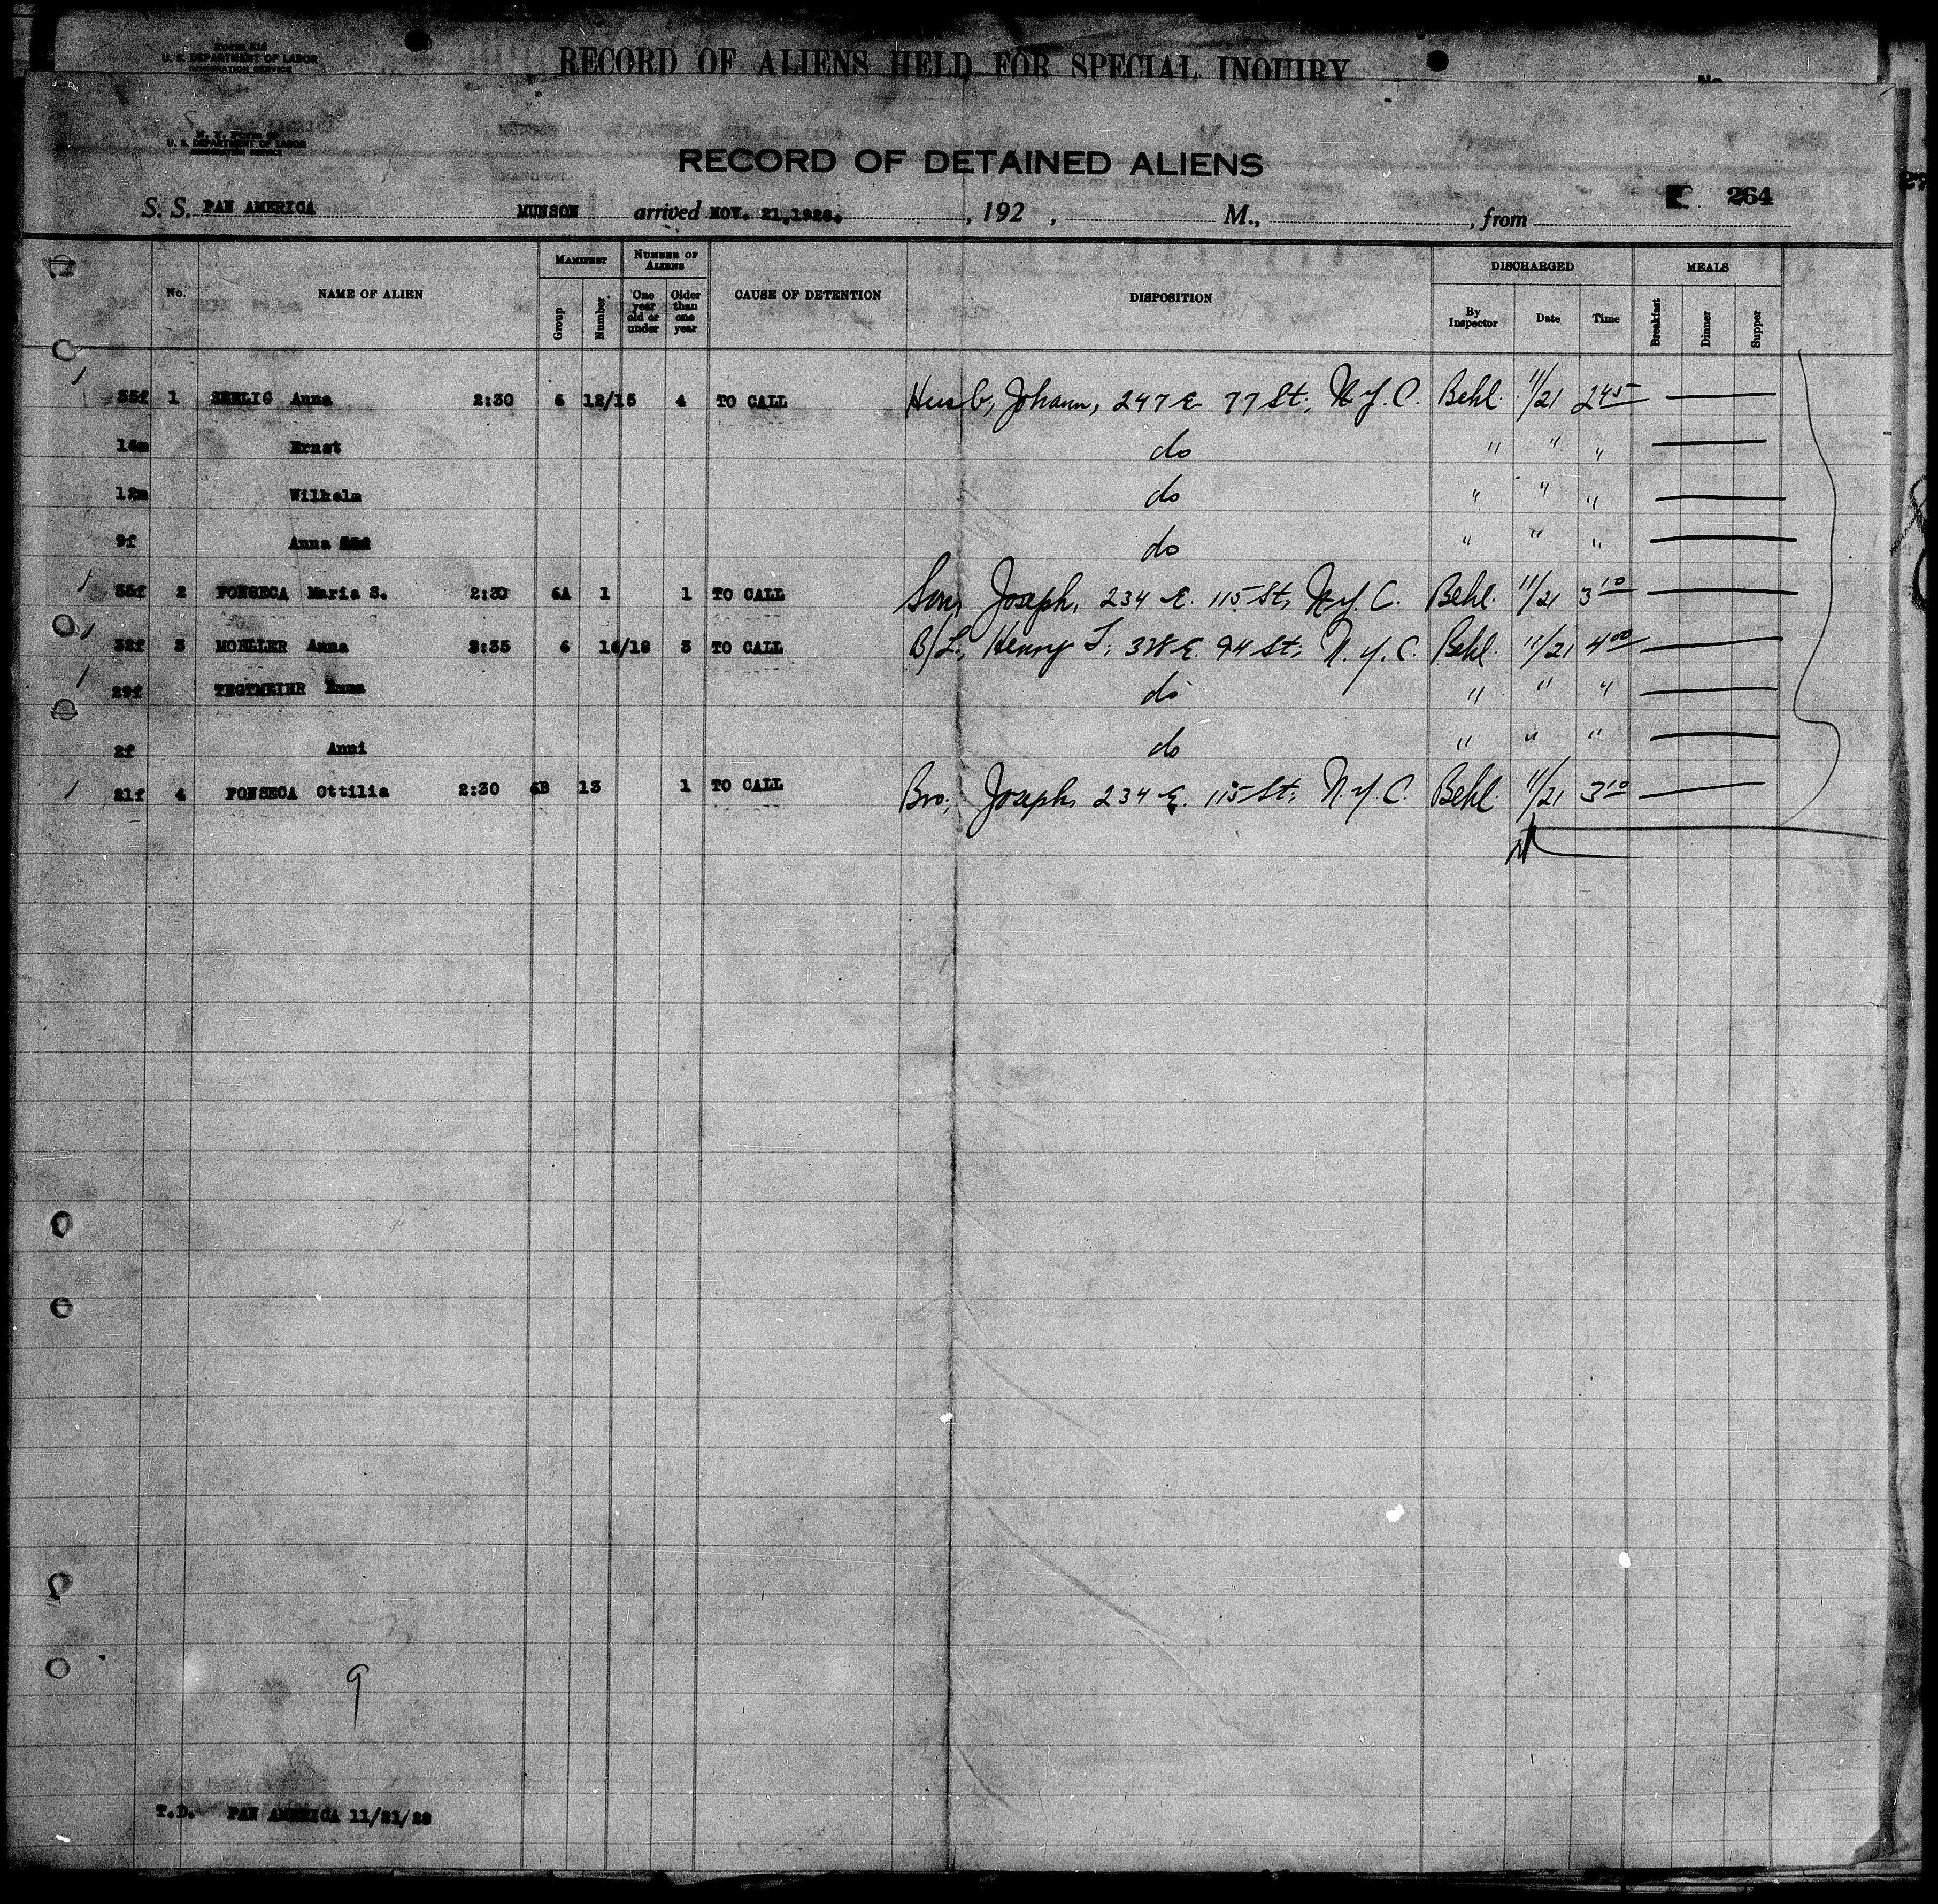 Form 518
U. S. DEPARTMENT OF LABOR
IMMIGRATION SERVICE
RECORD OF ALIENS HELD FOR SPECIAL INQUIRY
No.
N. Y. Form
U. S. DEPARTMENT OF LABOR
IMMIGRATION SERVICE
RECORD OF DETAINED ALIENS
264
S. S. PAN AMERICA MUNSON arrived NOV. 21,1928. , 192 , M., , from
No. NAME OF ALIEN MANIFEST Group Number NUMBER OF ALIENS One year old or under Older than one year CAUSE OF DETENTION DISPOSITION DISCHARGED By Inspector Date Time MEALS Breakfast Dinner Supper
1 Anna 2:30 6 12/15 4 TO CALL Husb, Johann, 247 E 77 St, N.Y.C. Behl. 11/21 2 45
Ernst do " " "
12m Wilhelm do " " "
9f Anna do " " "
2 FONSECA Maria S. 2:30 6A 1 1 TO CALL Son, Joseph, 234 E. 115 St, N.Y.C. Behl. 11/21 3 10
32f 3 MOELLER Anna 2:35 6 16/18 3 TO CALL B/L, Henry T, 328 E. 94 St, N.Y.C. Behl. 11/21 4 00
29f TEGTMEIER Emma do " " "
2f Anni do " " "
21f 4 FONSECA Ottilia 2:30 6B 13 1 TO CALL Bro, Joseph, 234 E. 115 St, N.Y.C. Behl. 11/21 3 10
9
T.D. PAN AMERICA 11/21/28